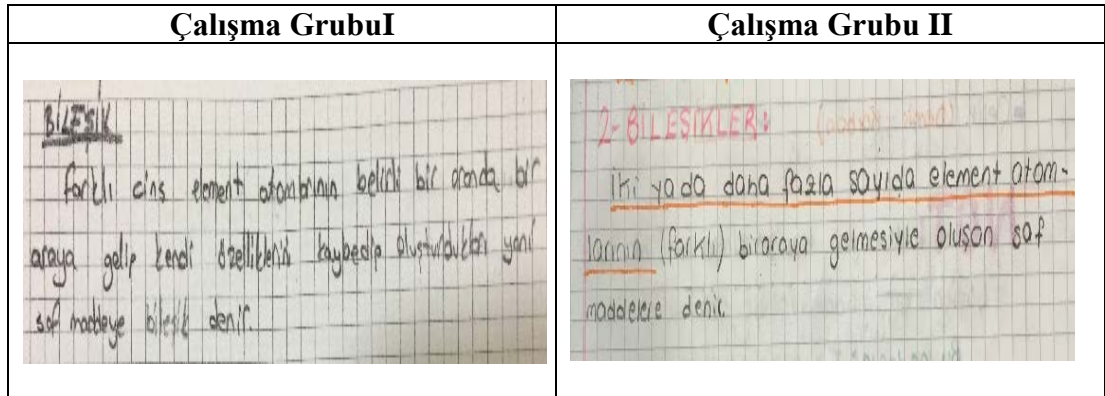 Çalışma GrubuI
Çalışma Grubu II
BİLEŞİK
farklı cins element atomlarının belirli bir oranda bir
araya gelip kendi özelliklerini kaybedip oluşturdukları yeni
saf maddeye bileşik denir.
2-BİLEŞİKLER:
İki yada daha fazla sayıda element atom-
larının (farklı) biraraya gelmesiyle oluşan saf
maddelere denir.